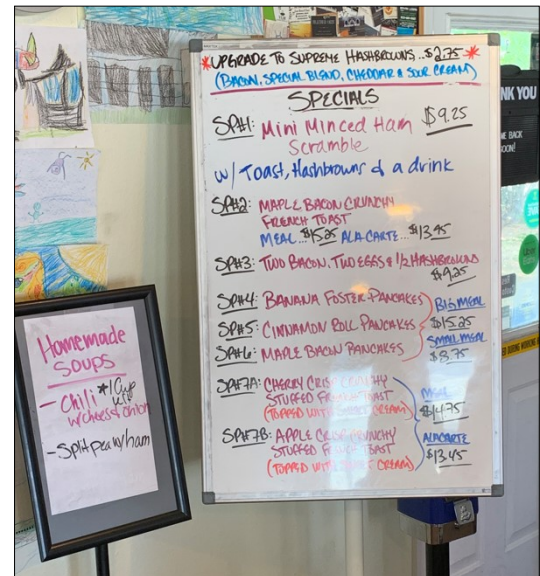 *UPGRADE TO SUPREME HASHBROWNS...$2.75*
(BACON, SPECIAL BLEND, CHEDDAR & SOUR CREAM)
SPECIALS
SP#1: Mini Minced Ham $9.25
Scramble
w/ Toast, Hashbrowns & a drink
SP#2: MAPLE BACON CRUNCHY
FRENCH TOAST
MEAL...$15.25 ALA CARTE...$13.45
SP#3: TWO BACON, TWO EGGS & 1/2 HASHBROWNS
$9.25
SP#4: BANANA FOSTER PANCAKES
BIG MEAL
$15.25
SP#5: CINNAMON ROLL PANCAKES
SMALL MEAL
$8.75
SP#6: MAPLE BACON PANCAKES
SP#7A: CHERRY CRISP CRUNCHY
STUFFED FRENCH TOAST
(TOPPED WITH SWEET CREAM)
MEAL
$14.75
SP#7B: APPLE CRISP CRUNCHY
STUFFED FRENCH TOAST
(TOPPED WITH SWEET CREAM)
ALACARTE
$13.45
Homemade
Soups
- Chili
w/ cheese & onion
- Split pea w/ham
NK YOU